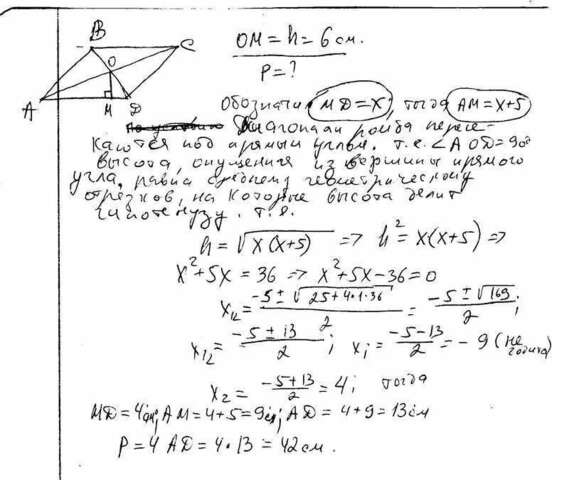 B
C
O
A
M
D
OM = h = 6 см.
P = ?
Обозначим MD = x, тогда AM = x+5
Диагонали ромба пересе-
каются под прямым углом. т.е. ∠AOD = 90°
высота, опущенная из вершины прямого
угла, равна среднему геометрическому
отрезков, на которые высота делит
гипотенузу. т.е.
h = √x(x+5) => h² = x(x+5) =>
x² + 5x = 36 => x² + 5x - 36 = 0
x₁₂ = (-5 ± √25+4·1·36)/2 = (-5 ± √169)/2;
x₁₂ = (-5 ± 13)/2; x₁ = (-5-13)/2 = -9 (не годится)
x₂ = (-5+13)/2 = 4; тогда
MD = 4см; AM = 4+5 = 9см; AD = 4+9 = 13см
P = 4 AD = 4·13 = 42 см.